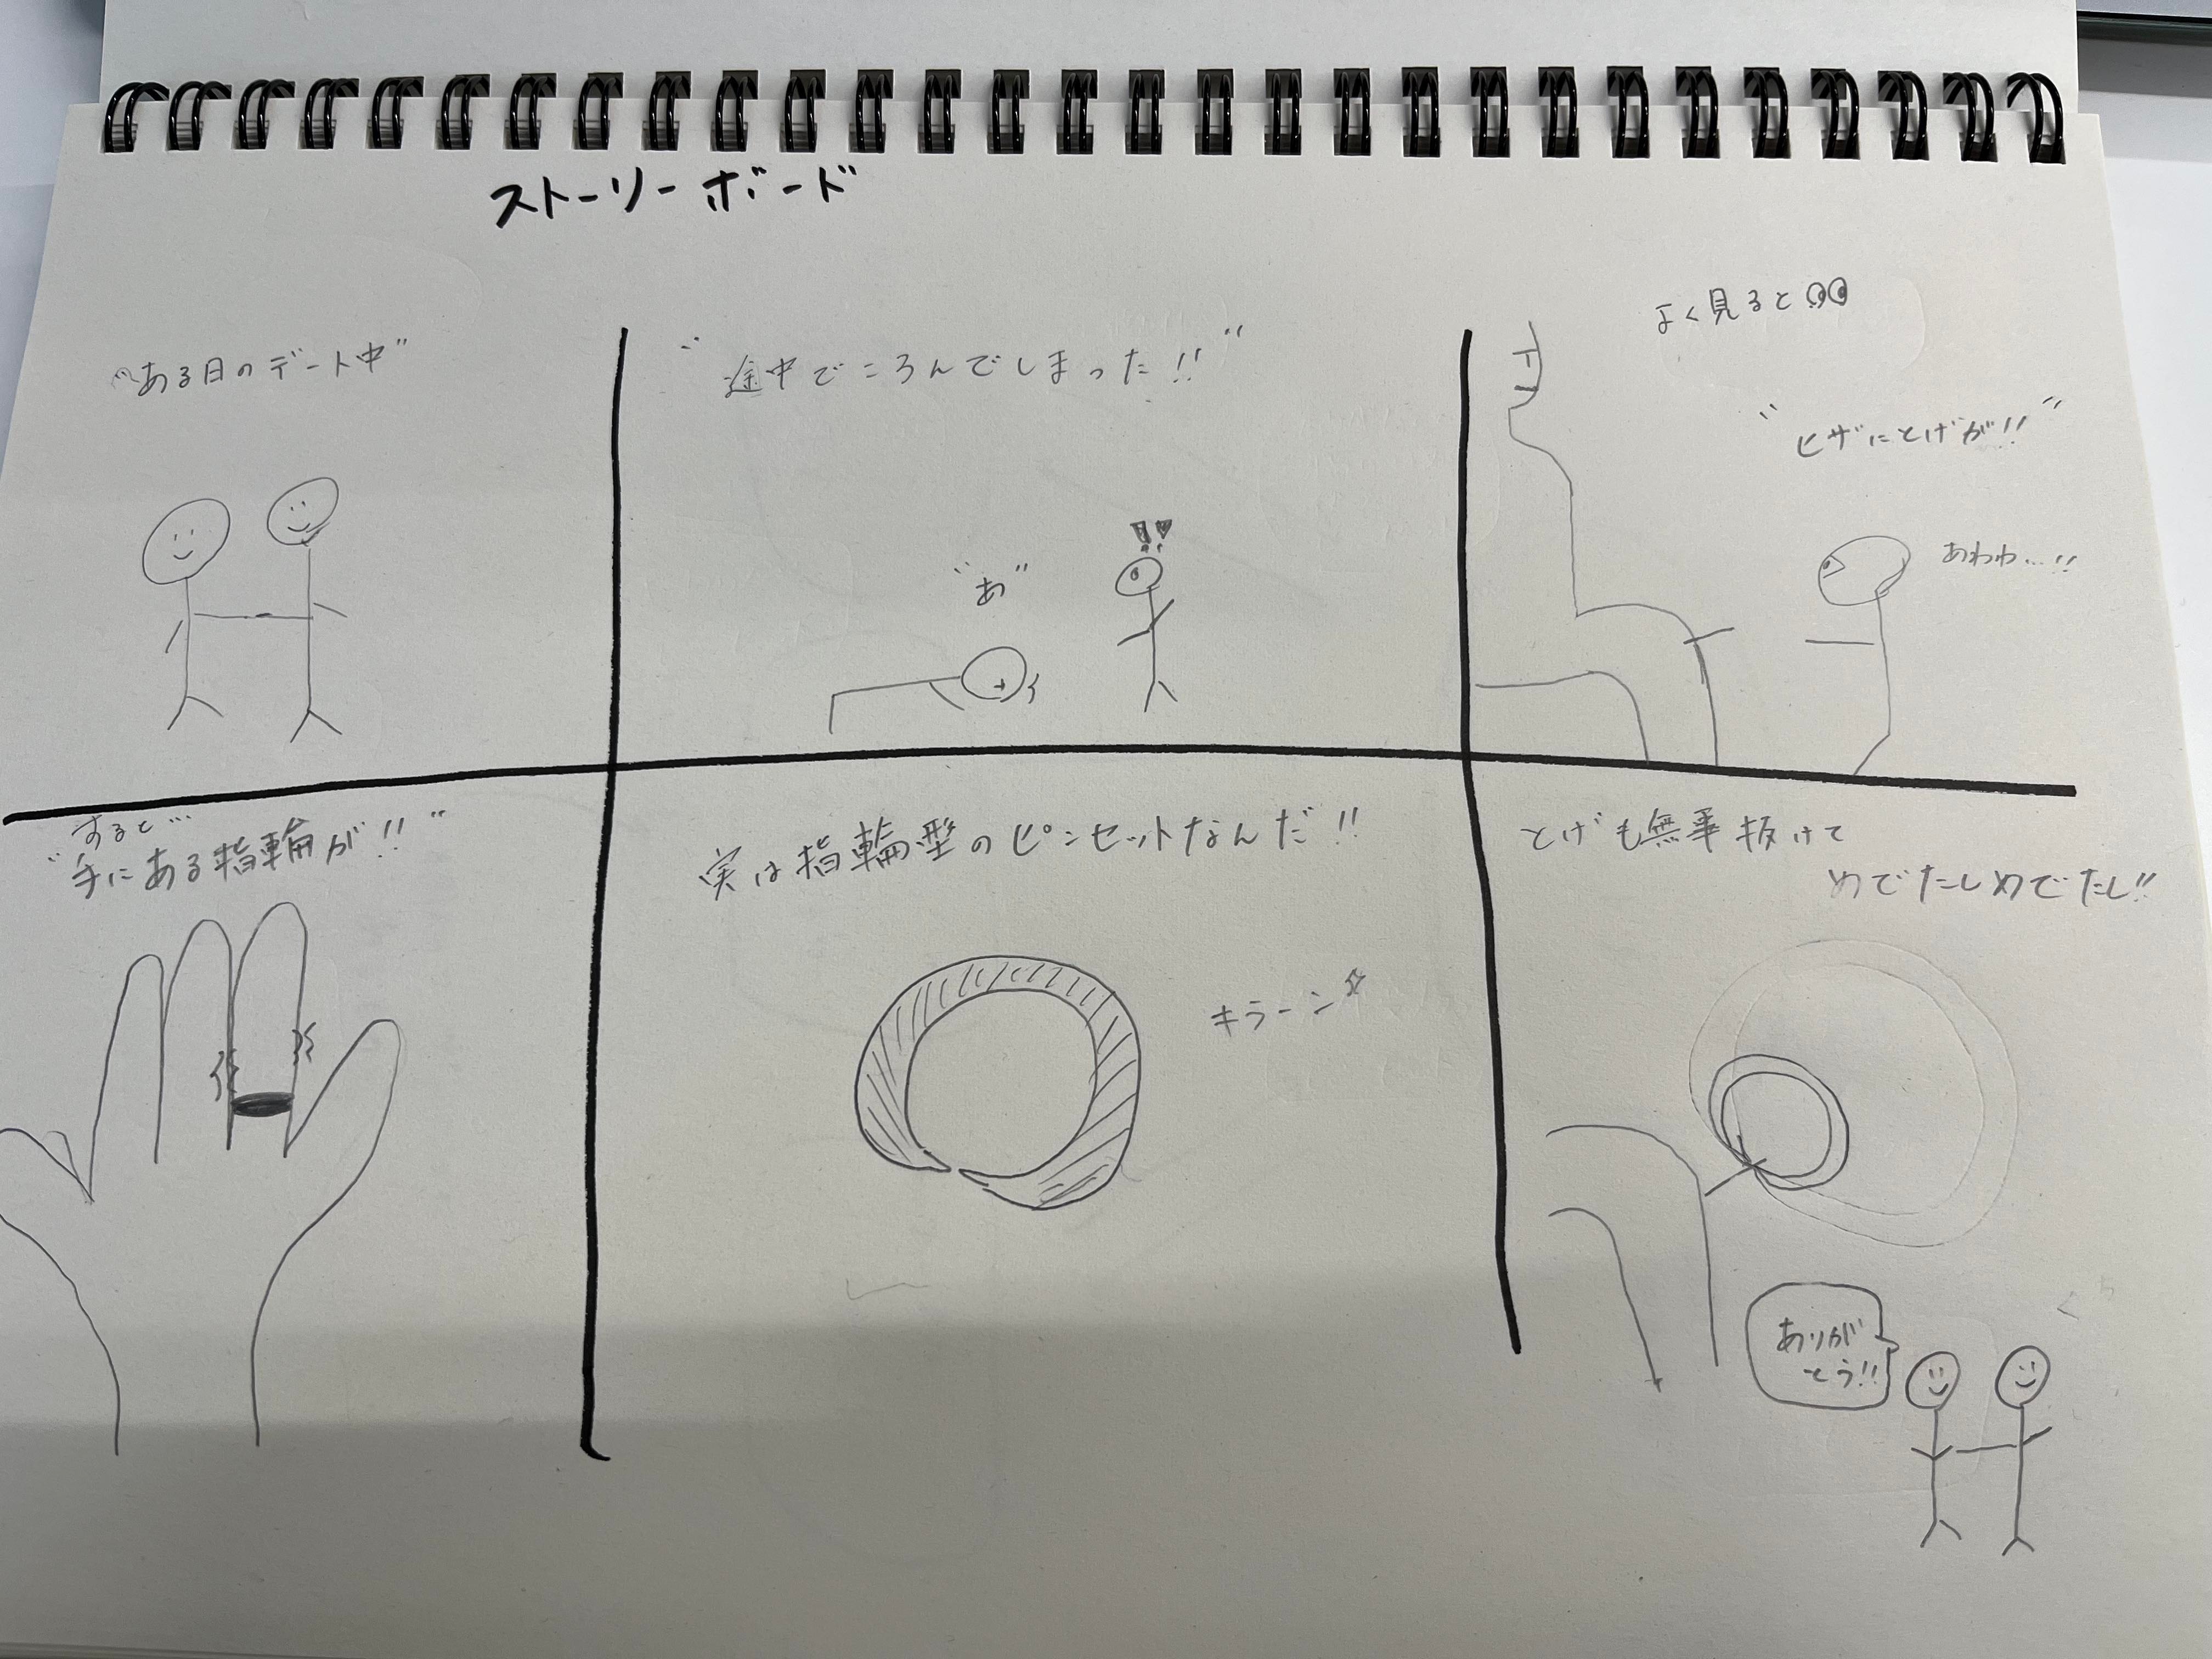 ストーリーボード
"ある日のデート中"
"途中でころんでしまった!!"
"あ"
!!
よく見ると
"ヒザにとげが!!"
あわわ…!!
すると…
"手にある指輪が!!"
実は指輪型のピンセットなんだ!!
キラーン☆
とげも無事抜けて
めでたしめでたし!!
ありが
とう!!